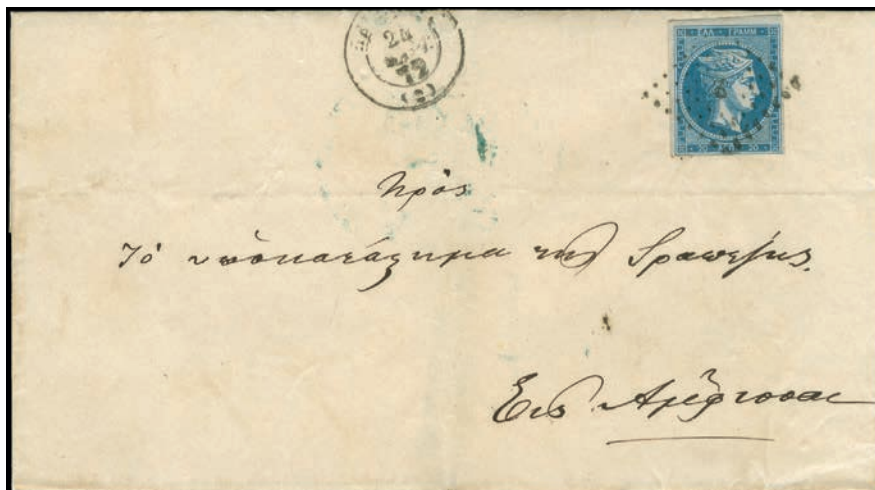 24
72
(2)
ΕΛΛ ΓΡΑΜΜ
20 20
Πρός
Τό υποκατάστημα της Τραπέζης.
Εις Αμφισσαν